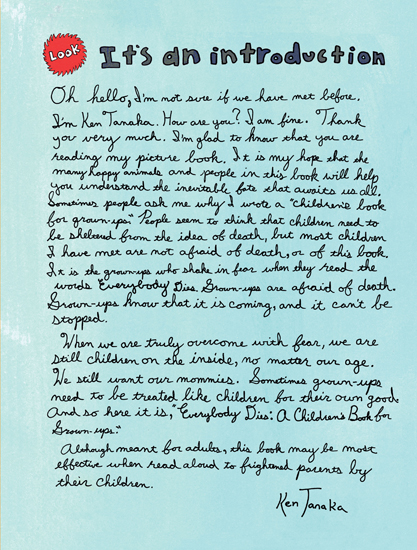 Look
It's an introduction
Oh hello, I'm not sure if we have met before.
I'm Ken Tanaka. How are you? I am fine. Thank
you very much. I'm glad to know that you are
reading my picture book. It is my hope that the
many happy animals and people in this book will help
you understand the inevitable fate that awaits us all.
Sometimes people ask me why I wrote a "children's book
for grown-ups." People seem to think that children need to
be sheltered from the idea of death, but most children
I have met are not afraid of death, or of this book.
It is the grown-ups who shake in fear when they read the
words "Everybody Dies. Grown-ups are afraid of death.
Grown-ups know that it is coming, and it can't be
stopped.
When we are truly overcome with fear, we are
still children on the inside, no matter our age.
We still want our mommies. Sometimes grown-ups
need to be treated like children for their own good.
And so here it is, "Everybody Dies: A Children's Book for
Grown-ups."
Although meant for adults, this book may be most
effective when read aloud to frightened parents by
their children.
Ken Tanaka